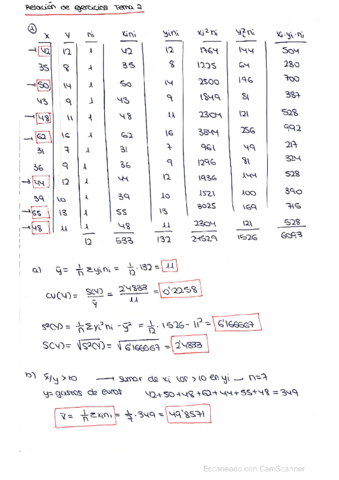 Relación de ejercicios Tema 2
①
X Y ni xini yini xi²ni yi²ni xi·yi·ni
→ 42 12 1 42 12 1764 144 504
35 8 1 35 8 1225 64 280
→ 50 14 1 50 14 2500 196 700
43 9 1 43 9 1849 81 387
→ 48 11 1 48 11 2304 121 528
→ 62 16 1 62 16 3844 256 992
31 7 1 31 7 961 49 217
36 9 1 36 9 1296 81 324
→ 44 12 1 44 12 1936 144 528
39 10 1 39 10 1521 100 390
→ 55 13 1 55 13 3025 169 715
→ 48 11 1 48 11 2304 121 528
12 533 132 24529 1526 6093
a) ȳ = 1/n Σyini = 1/12 · 132 = 11
CV(Y) = S(Y)/ȳ = 2'4833/11 = 0'2258
S²(Y) = 1/n Σyi²ni - ȳ² = 1/12 · 1526 - 11² = 6'166667
S(Y) = √S²(Y) = √6'166667 = 2'4833
b) x̄/y>10 → sumar de xi los >10 en yi → n=7
y = gastos de euros 42+50+48+62+44+55+48 = 349
x̄ = 1/n Σxini = 1/7 · 349 = 49'8571
Escaneado con CamScanner